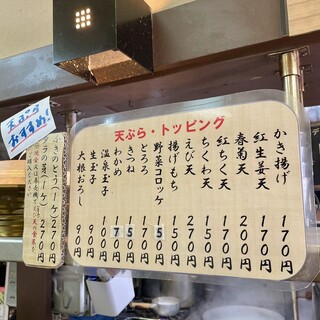 天ぷら・トッピング
かき揚げ 170円
紅生姜天 170円
春菊天 200円
紅ちく天 170円
ちくわ天 150円
えび天 270円
揚げもち 150円
野菜コロッケ 150円
とろろ 170円
きつね 150円
わかめ 70円
温泉玉子 100円
生玉子 90円
大根おろし 90円
おすすめ!